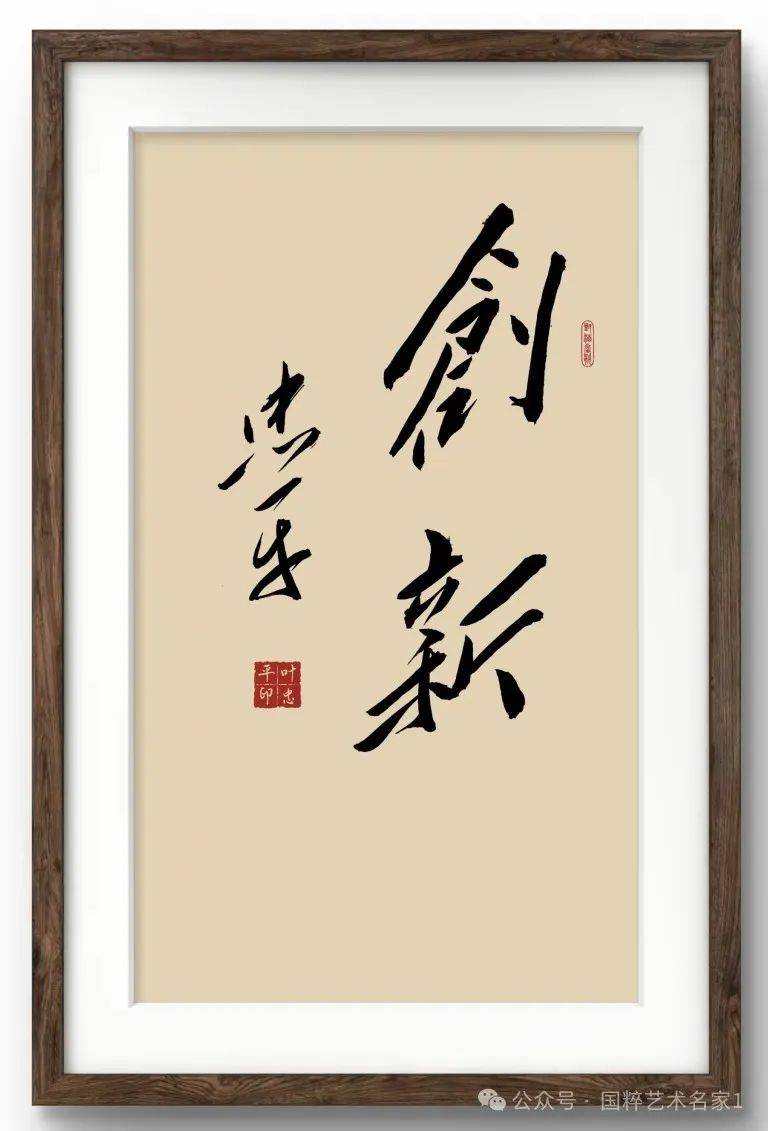 創新
忠平
叶忠平印
公众号 · 国粹艺术名家1